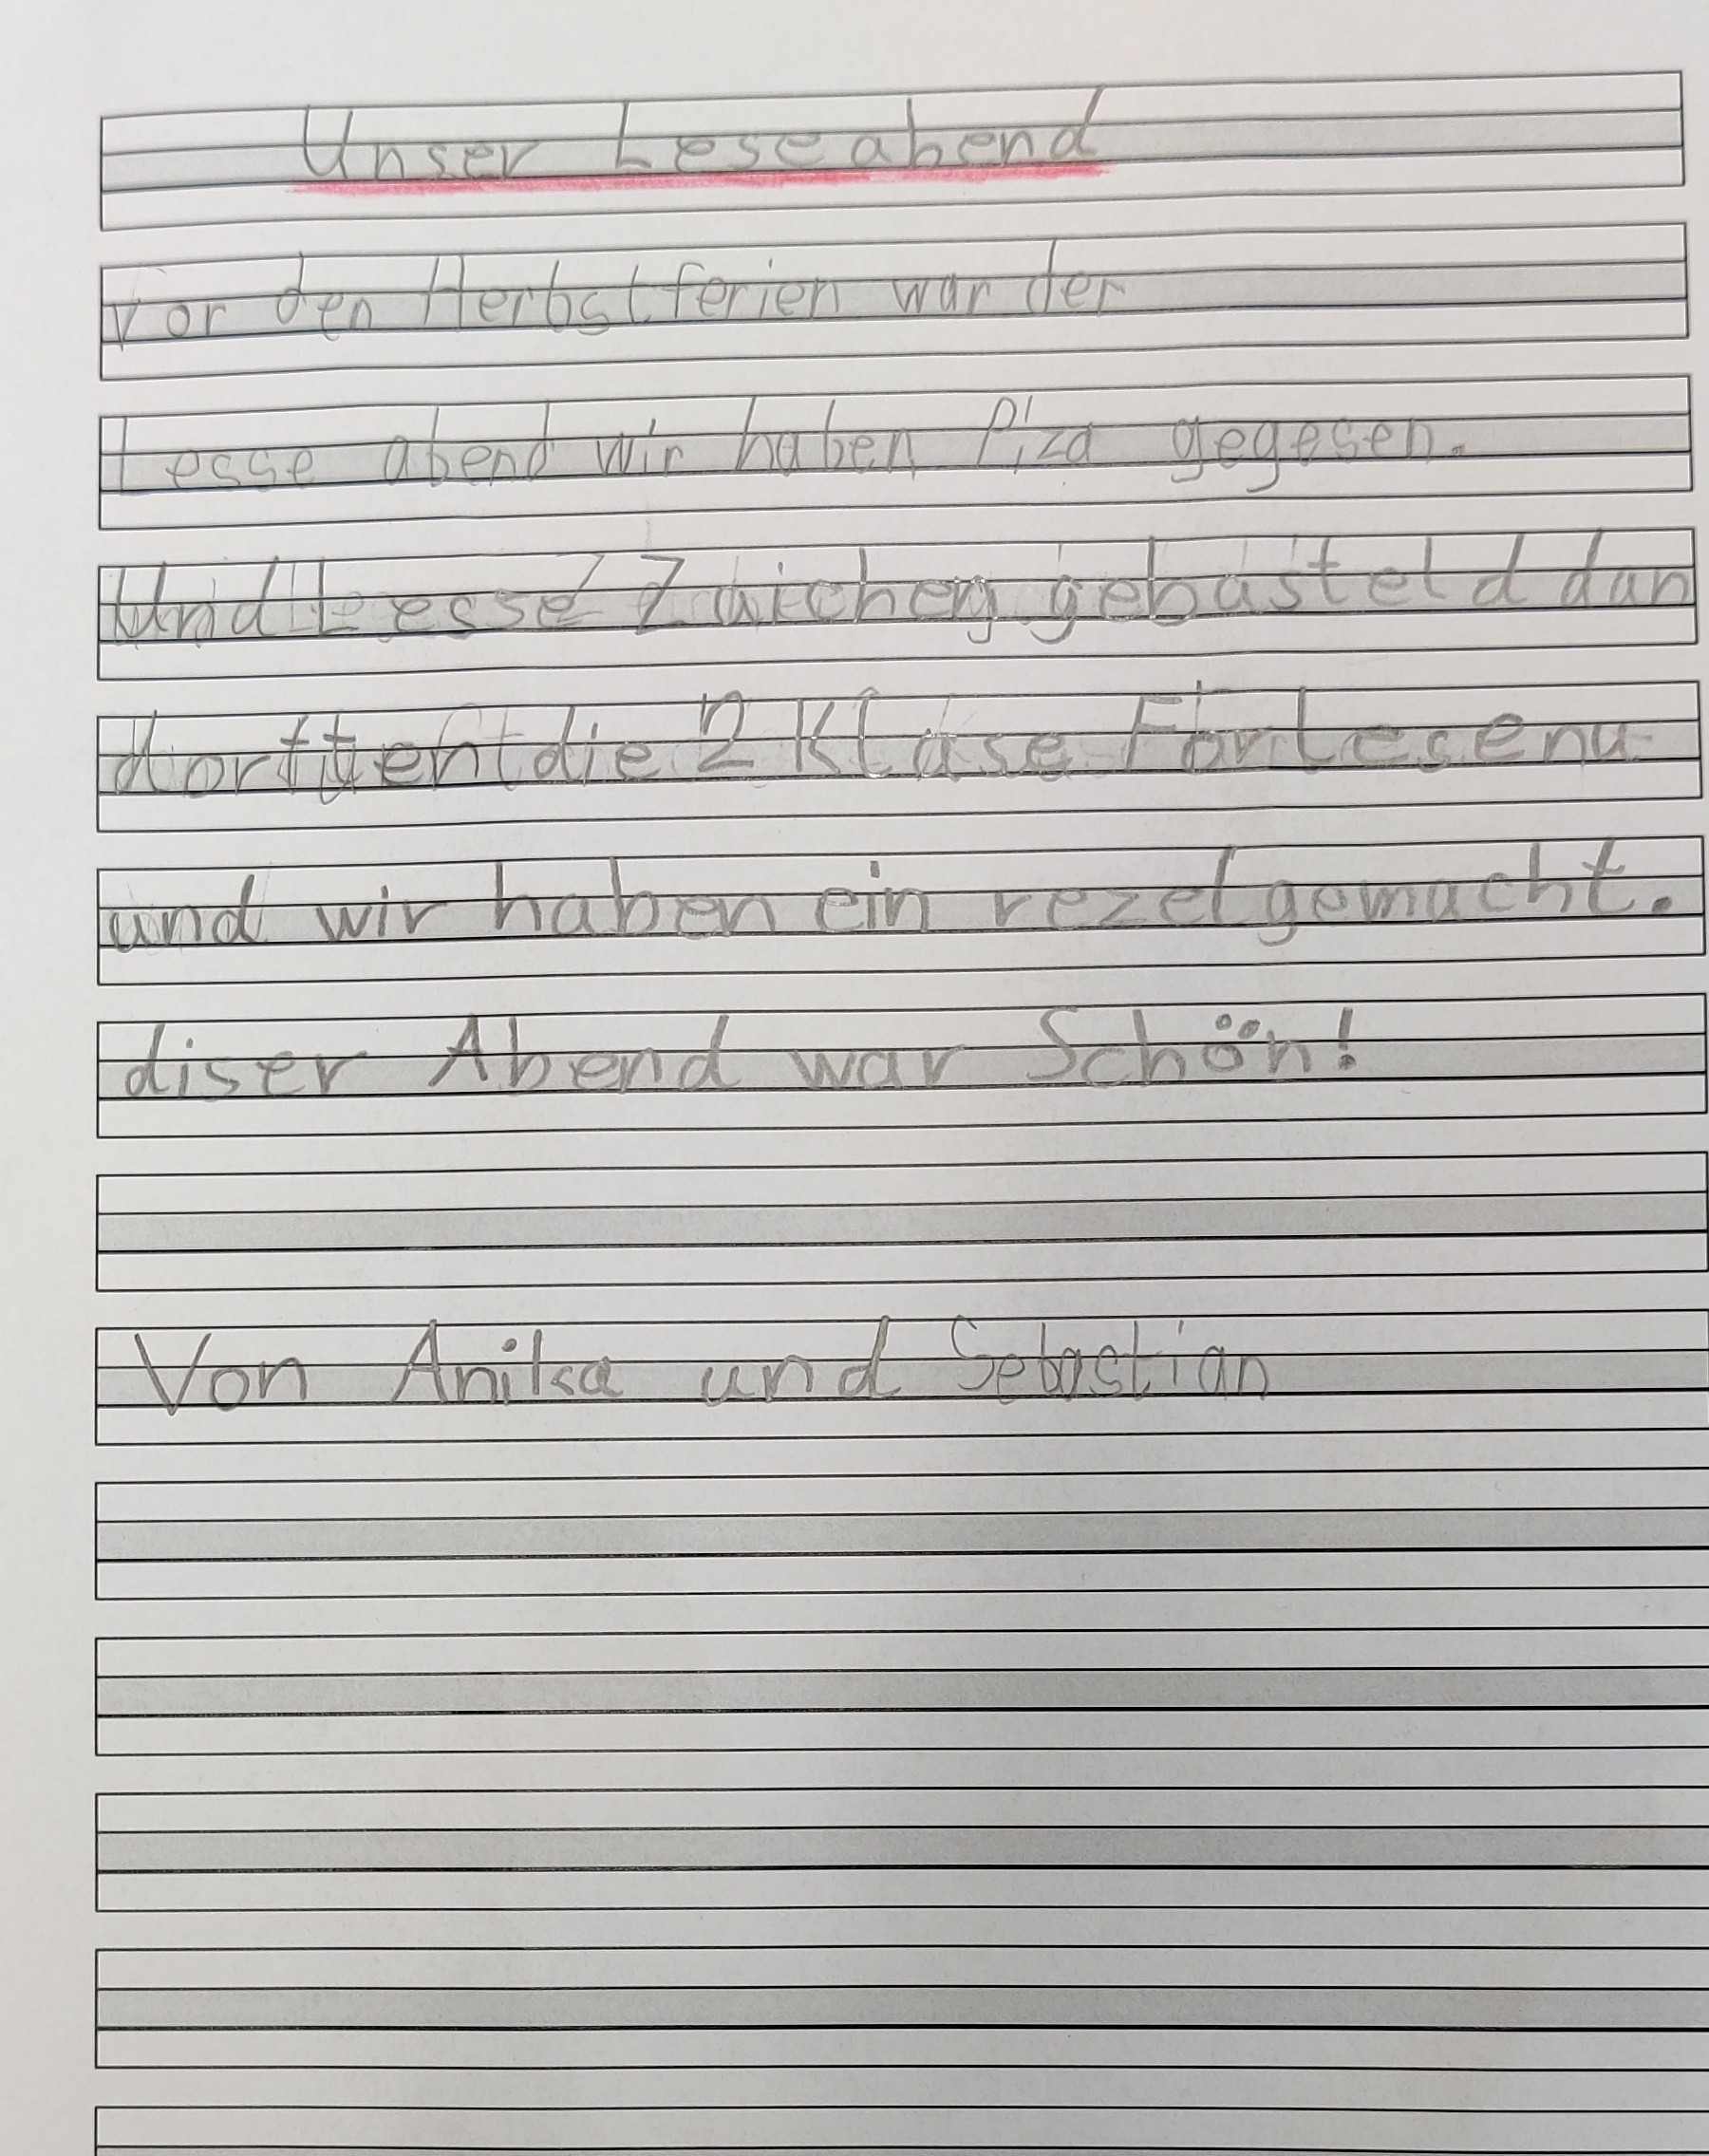 Unser Leseabend
Vor den Herbstferien war der
Lesse abend wir haben Pizza gegesen.
Und Lesse Zaichen gebasteld dan
die 2 Klase Forlesen
und wir haben ein rezel gemacht.
diser Abend war Schön!
Von Anika und Sebastian